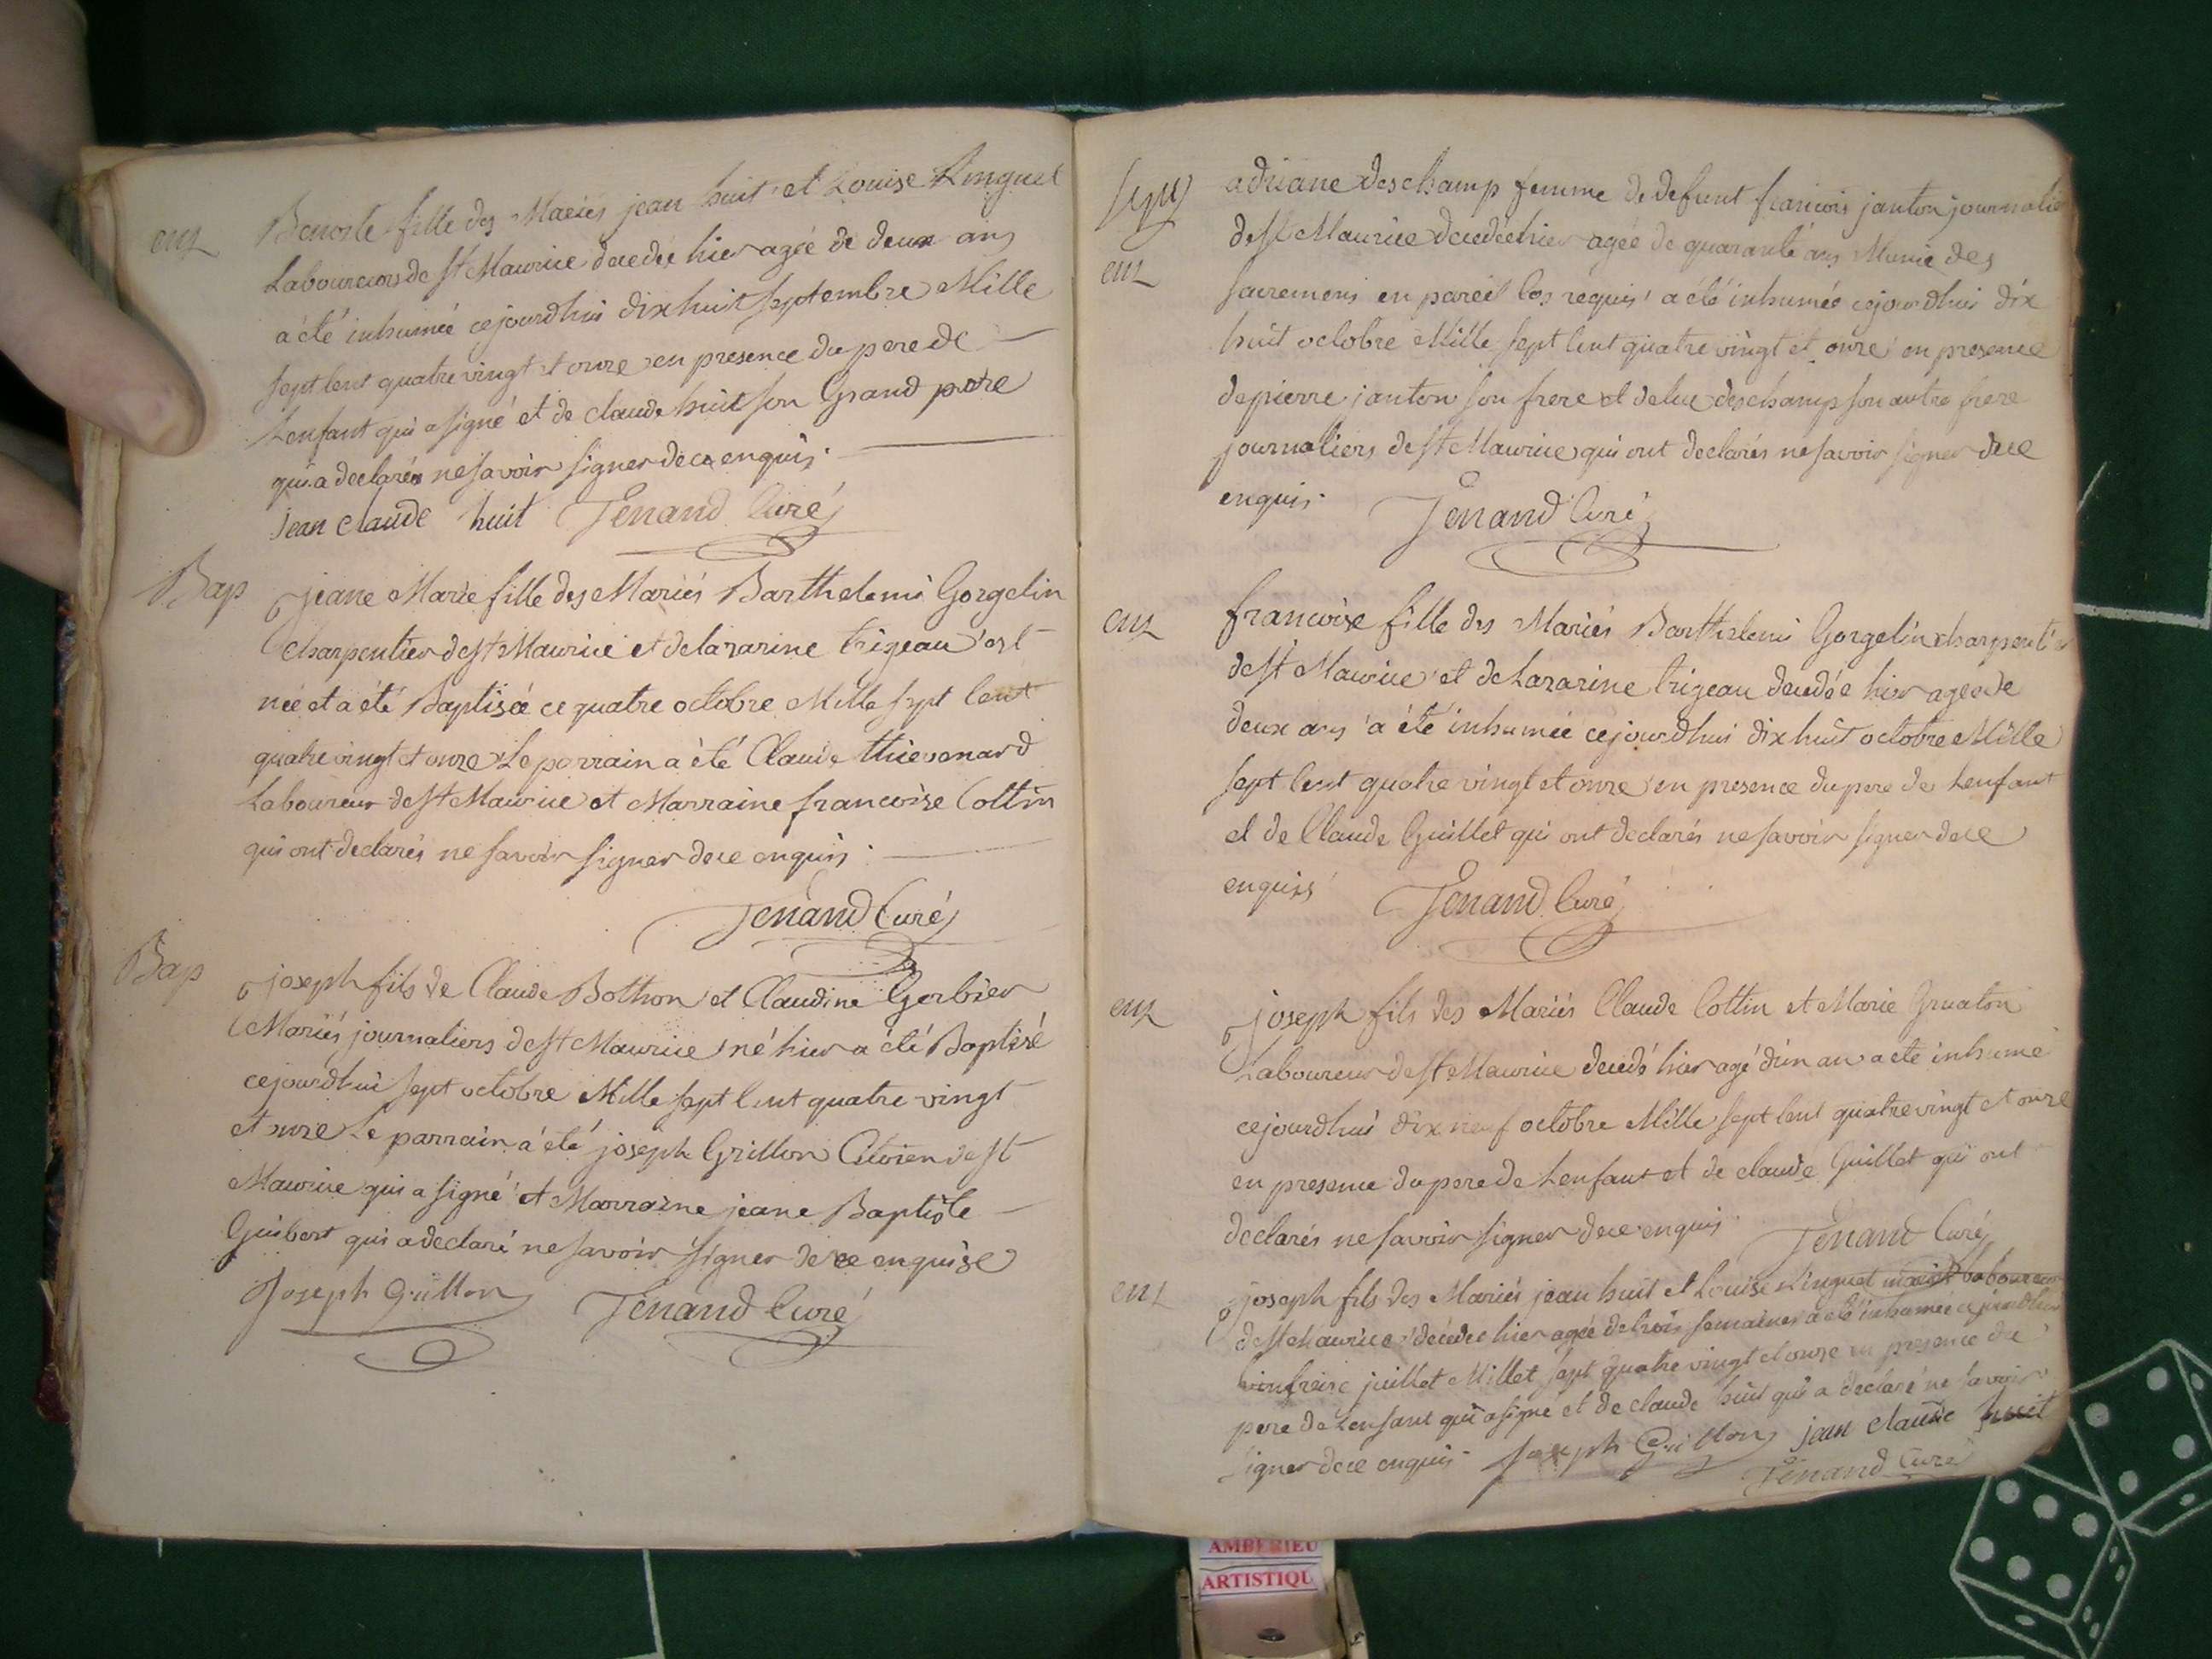 ent
Benoite fille des Mariés jean huit et Louise Linguet
Laboureurs de St Maurice decedée hier agée de deux ans
a été inhumée cejourdhui dix huit septembre Mille
sept cent quatre vingt et onze en presence du pere de
Lenfant qui a signé et de claude huit son Grand pere
qui a declarés ne savoir signer de ce enquis.
jean claude huit Tenand Curé
Bap
jeane Marie fille des Mariés Barthelemi Gorgelin
charpentier de St Maurice et de lazarine trigeau est
née et a été Baptisée ce quatre octobre Mille sept Cent
quatre vingt et onze Le parrain a été Claude thievenard
Laboureur de St Maurice et Marraine francoise Cottin
qui ont declarés ne savoir signer de ce enquis.
Tenand Curé
Bap
joseph fils de Claude Bothon et Claudine Gerbier
Mariés journaliers de St Maurice né hier a été Baptisé
cejourdhui sept octobre Mille sept Cent quatre vingt
et onze Le parrain a été joseph Grillon Citoien de St
Maurice qui a signé et Marraine jeane Baptiste
Guibert qui a declaré ne savoir signer de ce enquise
Joseph Grillon Tenand Curé
adriane deschamp femme de defunt francois janton journalie
ent
de St Maurice decedée hier agée de quarante ans Munie des
sacremens en pareil cas requis a été inhumée cejourdhui dix
huit octobre Mille sept Cent quatre vingt et onze en presence
de pierre janton son frere et de luc deschamp son autre frere
journaliers de St Maurice qui ont declarés ne savoir signer de ce
enquis. Tenand Curé
ent
francoise fille des Mariés Barthelemi Gorgelin charpentier
de St Maurice et de Lazarine trigeau decedée hier agée de
deux ans a été inhumée cejourdhui dix huit octobre Mille
sept Cent quatre vingt et onze en presence du pere de Lenfant
et de Claude Guillet qui ont declarés ne savoir signer de ce
enquis Tenand Curé
ent
joseph fils des Mariés Claude Cottin et Marie Gruaton
Laboureur de St Maurice decedé hier agé dun an a ete inhumé
cejourdhui dix neuf octobre Mille sept Cent quatre vingt et onze
en presence du pere de Lenfant et de claude Guillet qui ont
declarés ne savoir signer de ce enquis Tenand Curé
ent
joseph fils des Mariés jean huit et Louise Linguet Laboureur
de St Maurice decedee hier agée de trois semaines a été inhumée cejourdhui
juillet Millet sept quatre vingt et onze en presence du
pere de Lenfant qui a signé et de claude huit qui a declaré ne savoir
signer de ce enquis Joseph Grillon jean claude huit
Tenand Curé
AMBERIEU
ARTISTIQU